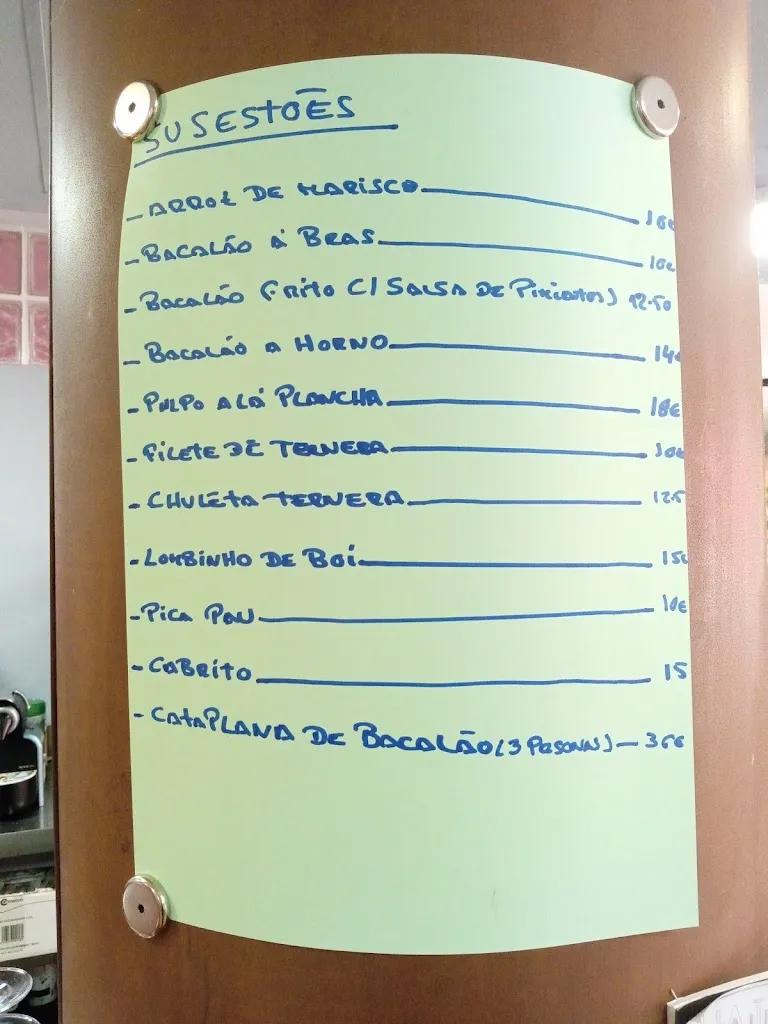 SUSESTÕES
- ARROZ DE MARISCO 16€
- BACALÃO Á BRAS 10€
- BACALÃO (FRITO C/SALSA DE PIMIENTOS) 12.50
- BACALÃO A HORNO 14€
- PULPO A LÁ PLANCHA 18€
- FILETE DE TERNERA 10€
- CHULETA TERNERA 12.5
- LOMBINHO DE BOI 15€
- PICA PAU 10€
- CABRITO 15
- CATAPLANA DE BACALÃO (3 PERSONAS) - 36€